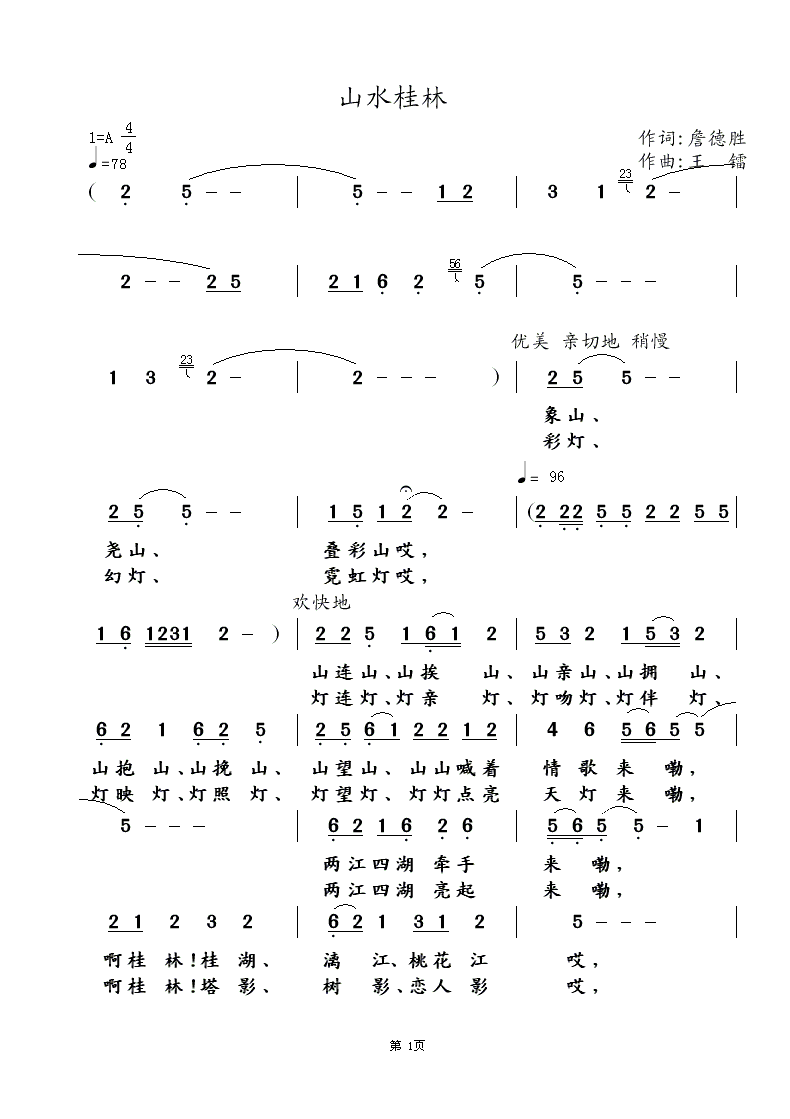 山水桂林
1=A 4/4
作词:詹德胜
♩=78
作曲:王 镭
( 2 5 - - | 5 - - 1 2 | 3 1 23 2 -
2 - - 2 5 | 2 1 6 2 56 5 | 5 - - - |
优美 亲切地 稍慢
1 3 23 2 - 2 - - - ) | 2 5 5 - - |
象山、
彩灯、
♩= 96
2 5 5 - - | 1 5 1 2 2 - | (2 22 5 5 2 2 5 5 |
尧山、 叠彩山哎,
幻灯、 霓虹灯哎,
欢快地
1 6 1231 2 - ) | 2 2 5 1 6 1 2 | 5 3 2 1 5 3 2 |
山连山、山挨 山、 山亲山、山拥 山、
灯连灯、灯亲 灯、 灯吻灯、灯伴 灯、
6 2 1 6 2 5 | 2 5 6 1 2 2 1 2 | 4 6 5 6 5 5 |
山抱 山、山挽 山、 山望山、 山山喊着 情 歌 来 嘞,
灯映 灯、灯照 灯、 灯望灯、 灯灯点亮 天 灯 来 嘞,
5 - - - | 6 2 1 6 2 6 | 5 6 5 5 - 1 |
两江四湖 牵手 来 嘞,
两江四湖 亮起 来 嘞,
2 1 2 3 2 | 6 2 1 3 1 2 | 5 - - - |
啊桂 林!桂 湖、 漓 江、桃花 江 哎,
啊桂 林!塔 影、 树 影、恋人 影 哎,
第 1页